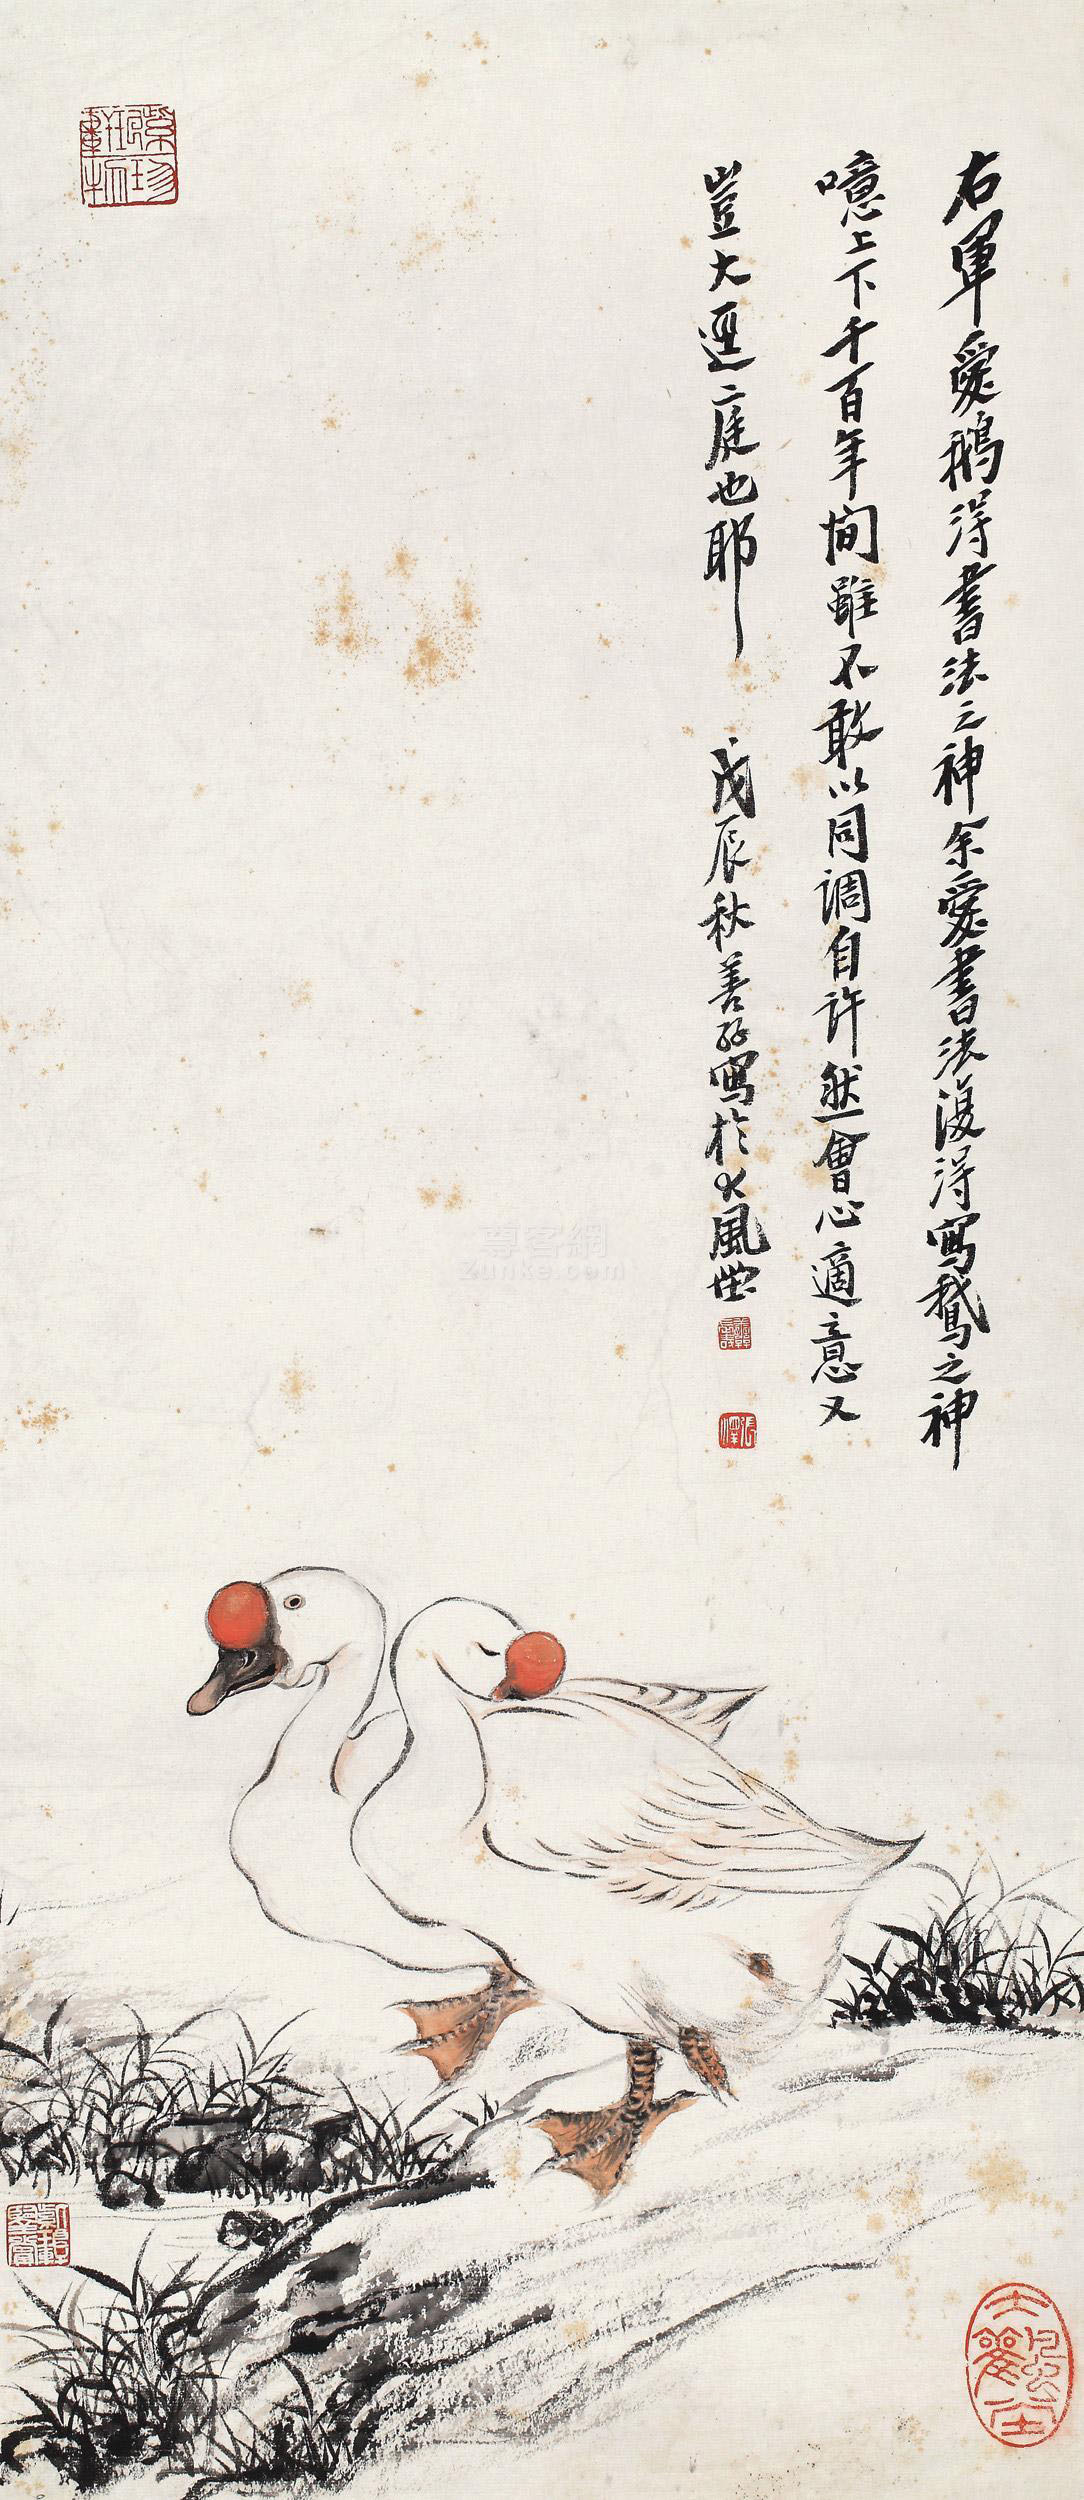 右軍愛鵝得書法之神余愛書法復得寫鵞之神
噫上下千百年間雖不敢以同調自許然會心適意又
豈大逕庭也耶
戊辰秋善孖寫於大風堂
張澤
大風堂
尊客網
Zunke.com